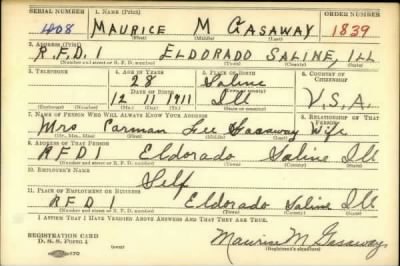 SERIAL NUMBER 1. NAME (Print) ORDER NUMBER
408 MAURICE M GASAWAY 1839
(First) (Middle) (Last)
2. ADDRESS (Print)
R.F.D. 1 ELDORADO SALINE, ILL
(Number and street or R. F. D. number) (Town) (County) (State)
3. TELEPHONE 4. AGE IN YEARS 5. PLACE OF BIRTH 6. COUNTRY OF CITIZENSHIP
28 Saline
DATE OF BIRTH (Town or county)
12 11 1911 Ill U.S.A.
(Exchange) (Number) (Mo.) (Day) (Yr.) (State or country)
7. NAME OF PERSON WHO WILL ALWAYS KNOW YOUR ADDRESS 8. RELATIONSHIP OF THAT PERSON
Mrs Carman Lee Gasaway Wife
(Mr., Mrs., Miss) (First) (Middle) (Last)
9. ADDRESS OF THAT PERSON
RFD 1 Eldorado Saline Ill
(Number and street or R. F. D. number) (Town) (County) (State)
10. EMPLOYER'S NAME
Self
11. PLACE OF EMPLOYMENT OR BUSINESS
RFD 1 Eldorado Saline Ill
(Number and street or R. F. D. number) (Town) (County) (State)
I AFFIRM THAT I HAVE VERIFIED ABOVE ANSWERS AND THAT THEY ARE TRUE.
REGISTRATION CARD
D. S. S. FORM 1
Maurice M Gasaway
(Registrant's signature)